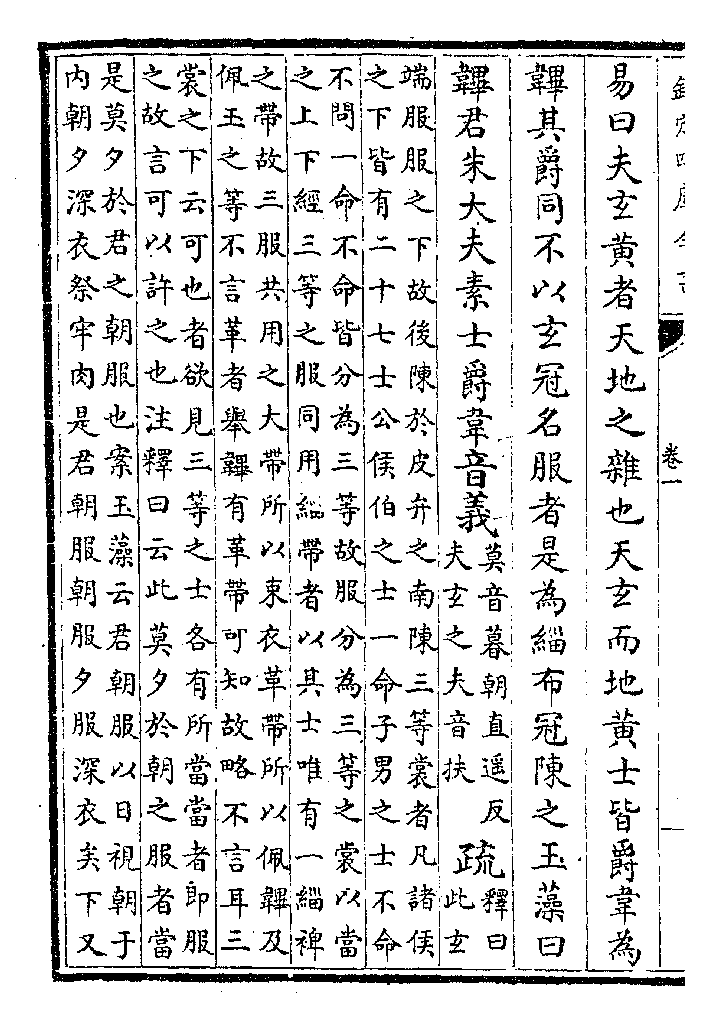 欽定四庫全書
卷一
易曰夫玄黃者天地之雜也天玄而地黃士皆爵韋為
韠其爵同不以玄冠名服者是為緇布冠陳之玉藻曰
韠君朱大夫素士爵韋音義
莫音暮朝直遥反
夫玄之夫音扶
疏
釋曰
此玄
端服服之下故後陳於皮弁之南陳三等裳者凡諸侯
之下皆有二十七士公侯伯之士一命子男之士不命
不問一命不命皆分為三等故服分為三等之裳以當
之上下經三等之服同用緇帶者以其士唯有一緇裨
之帶故三服共用之大帶所以束衣革帶所以佩韠及
佩玉之等不言革者舉韠有革帶可知故略不言耳三
裳之下云可也者欲見三等之士各有所當當者即服
之故言可以許之也注釋曰云此莫夕於朝之服者當
是莫夕於君之朝服也案玉藻云君朝服以日視朝于
內朝夕深衣祭牢肉是君朝服朝服夕服深衣矣下又